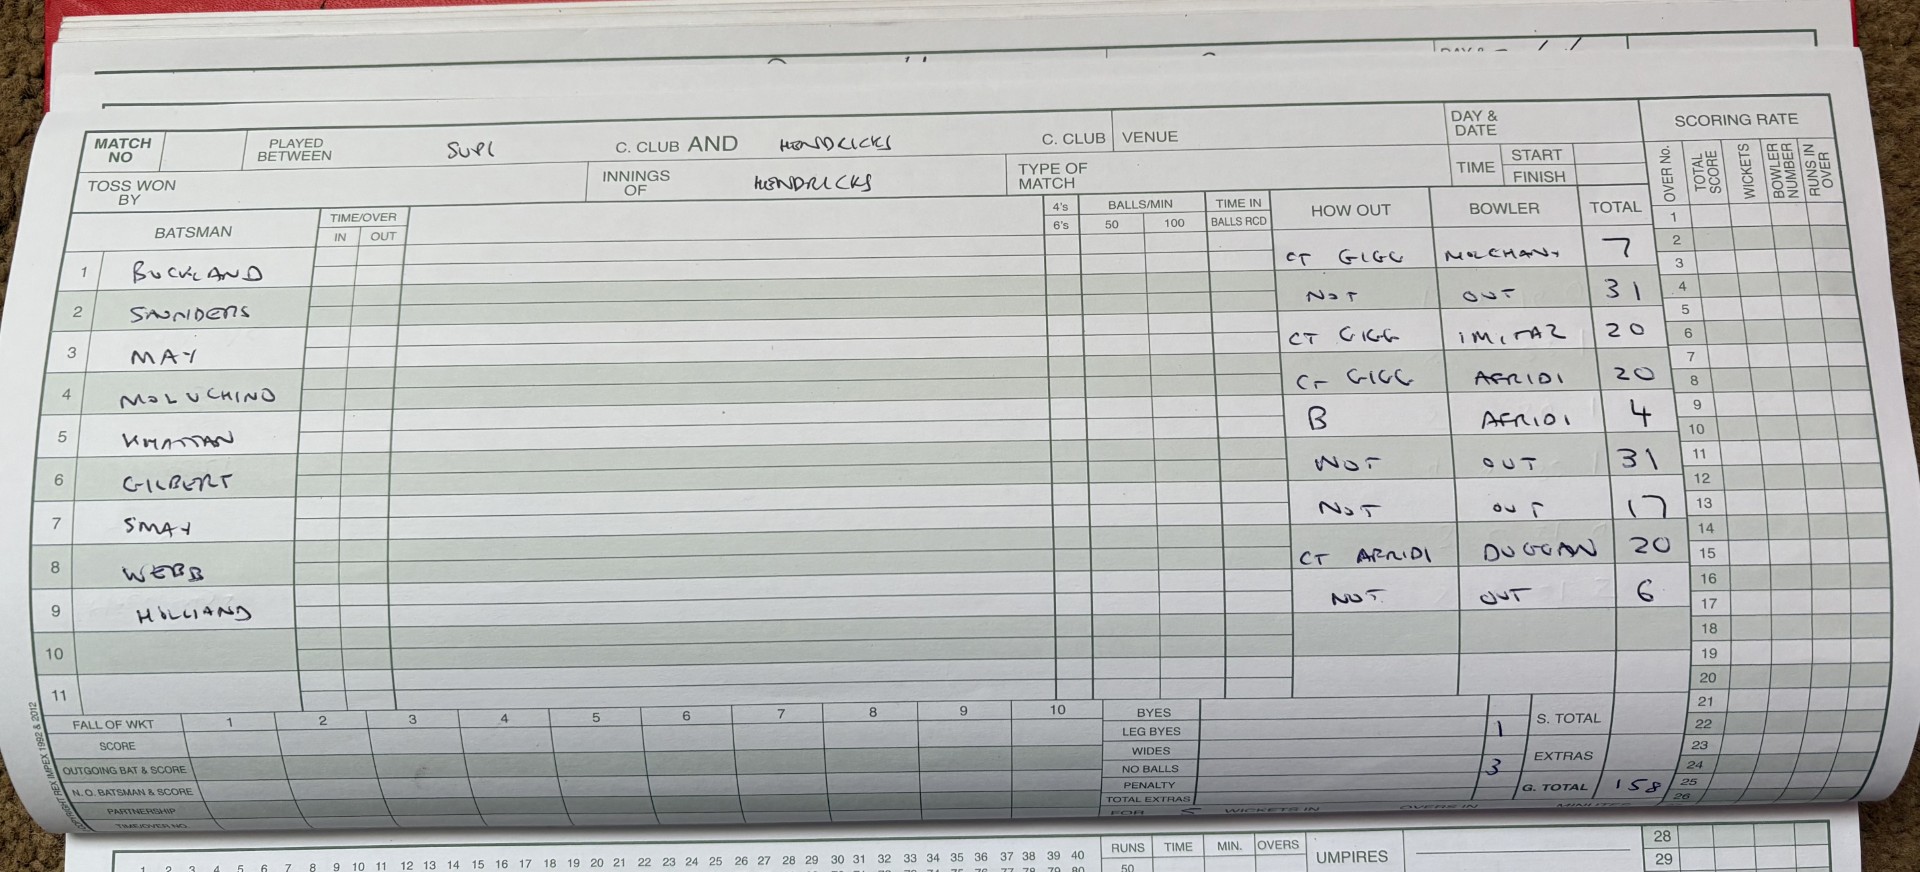 DAY &
MATCH NO PLAYED BETWEEN SUPL C. CLUB AND HENDRICKS C. CLUB VENUE DAY & DATE SCORING RATE
TOSS WON BY INNINGS OF HENDRICKS TYPE OF MATCH TIME START FINISH
OVER No. TOTAL SCORE WICKETS BOWLER NUMBER RUNS IN OVER
BATSMAN TIME/OVER IN OUT 4's 6's BALLS/MIN 50 100 TIME IN BALLS RCD HOW OUT BOWLER TOTAL
1 BUCKLAND CT GIGG 7
2 SAUNDERS NOT OUT 31
3 MAY CT GIGG IMITAZ 20
4 MOLUCHIND CT GIGG AFRIDI 20
5 KHATTAN B AFRIDI 4
6 GILBERT NOT OUT 31
7 SMAY NOT OUT 17
8 WEBB CT AFRIDI DUGGAN 20
9 HOLLAND NOT OUT 6
10
11
1
2
3
4
5
6
7
8
9
10
11
12
13
14
15
16
17
18
19
20
21
22
23
24
25
26
FALL OF WKT 1 2 3 4 5 6 7 8 9 10
SCORE
OUTGOING BAT & SCORE
N.O. BATSMAN & SCORE
PARTNERSHIP
TIME/OVER NO.
BYES
LEG BYES 1
WIDES
NO BALLS 3
PENALTY
TOTAL EXTRAS
FOR 5 WICKETS IN OVERS IN MINUTES
S. TOTAL
EXTRAS
G. TOTAL 158
COPYRIGHT REX IMPEX 1992 & 2012
1 2 3 4 5 6 7 8 9 10 11 12 13 14 15 16 17 18 19 20 21 22 23 24 25 26 27 28 29 30 31 32 33 34 35 36 37 38 39 40
RUNS TIME MIN. OVERS UMPIRES
50
28
29